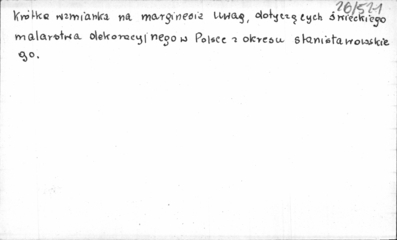 26/521
Krótka wzmianka na marginesie uwag, dotyczących świeckiego
malarstwa dekoracyjnego w Polsce z okresu stanisławowskie
go.